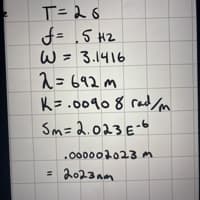 T= 2 s
f= .5 HZ
W = 3.1416
λ= 692 m
K= .00908 rad/m
Sm= 2.023 E-6
.000002023 m
= 2023nm